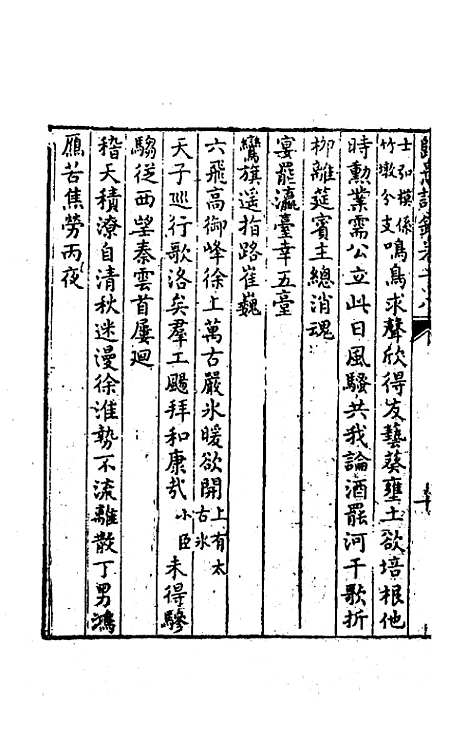 士弘模係
竹墩分支鳴鳥求聲欣得友藝葵壅土欲培根他
時勳業需公立此日風騷共我論酒罷河干歌折
柳離筵賓主總消魂
宴罷瀛臺幸五臺
鸞旗遥指路崔巍
六飛高御峰徐上萬古嚴氷暖欲開上有太
古氷
天子廵行歌洛矣羣工颺拜和康哉小臣未得驂
騶從西望秦雲首屢廻
稽天積潦自清秋迷漫徐淮勢不流離散丁男鴻
雁苦焦勞丙夜